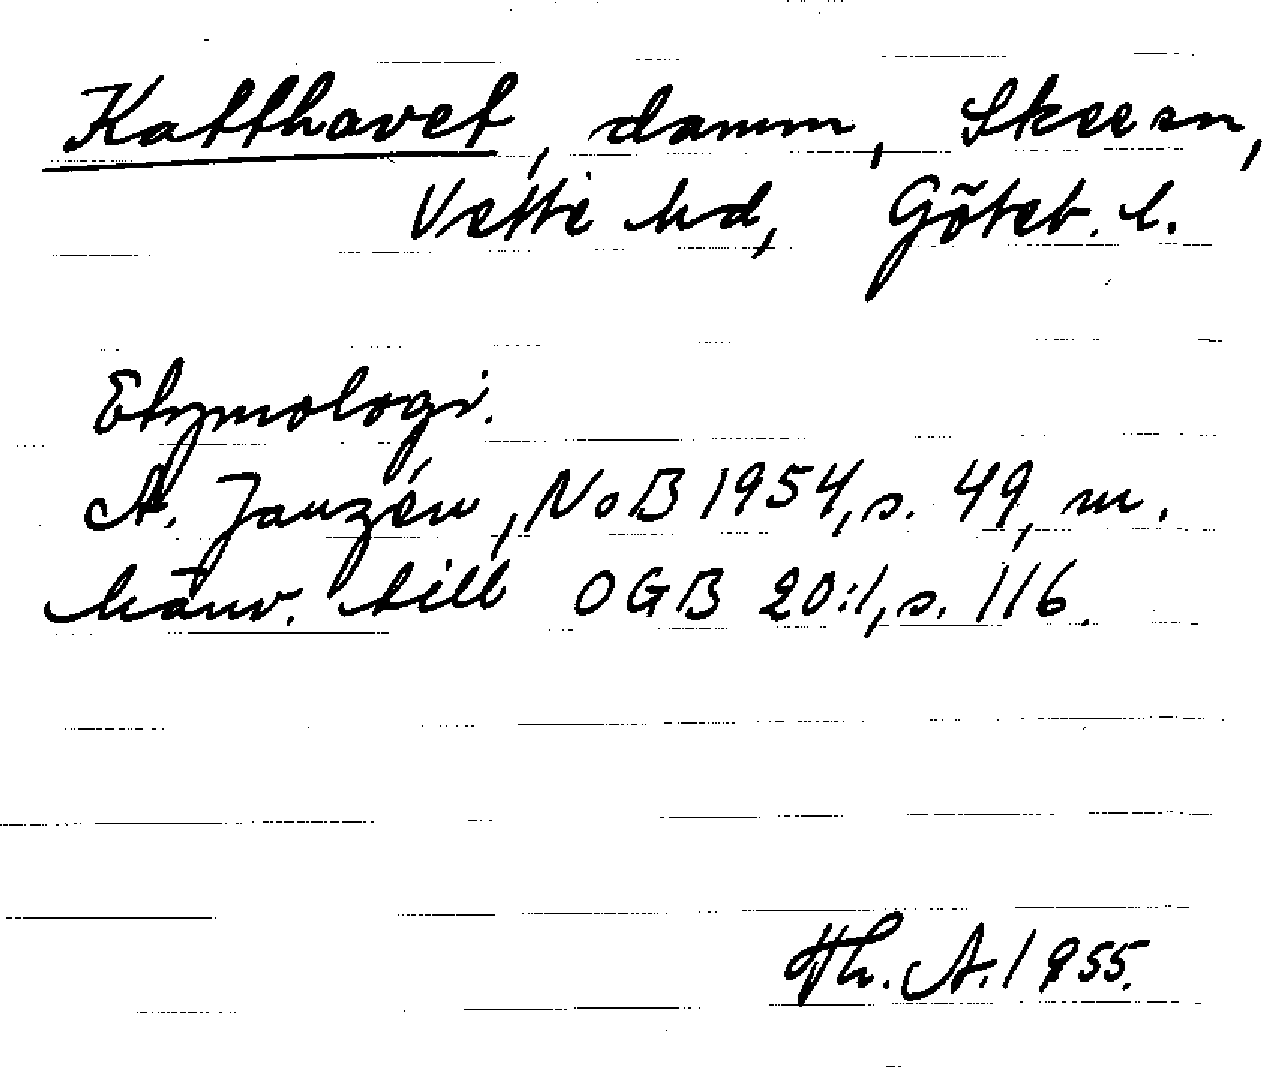 Katthavet, damm, Skeesn,
Vette hd, Göteb. l.
Etymologi.
A. Janzén, NoB 1954, s. 49, m.
hänv. till OGB 20:1, s. 116.
Th. A. 1955.